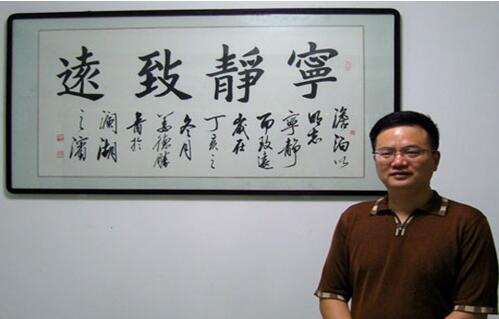 寧靜致遠
澹泊以
明志寧靜
而致遠
歲在
丁亥之
冬月
德勝
書於
瀾湖
之濱